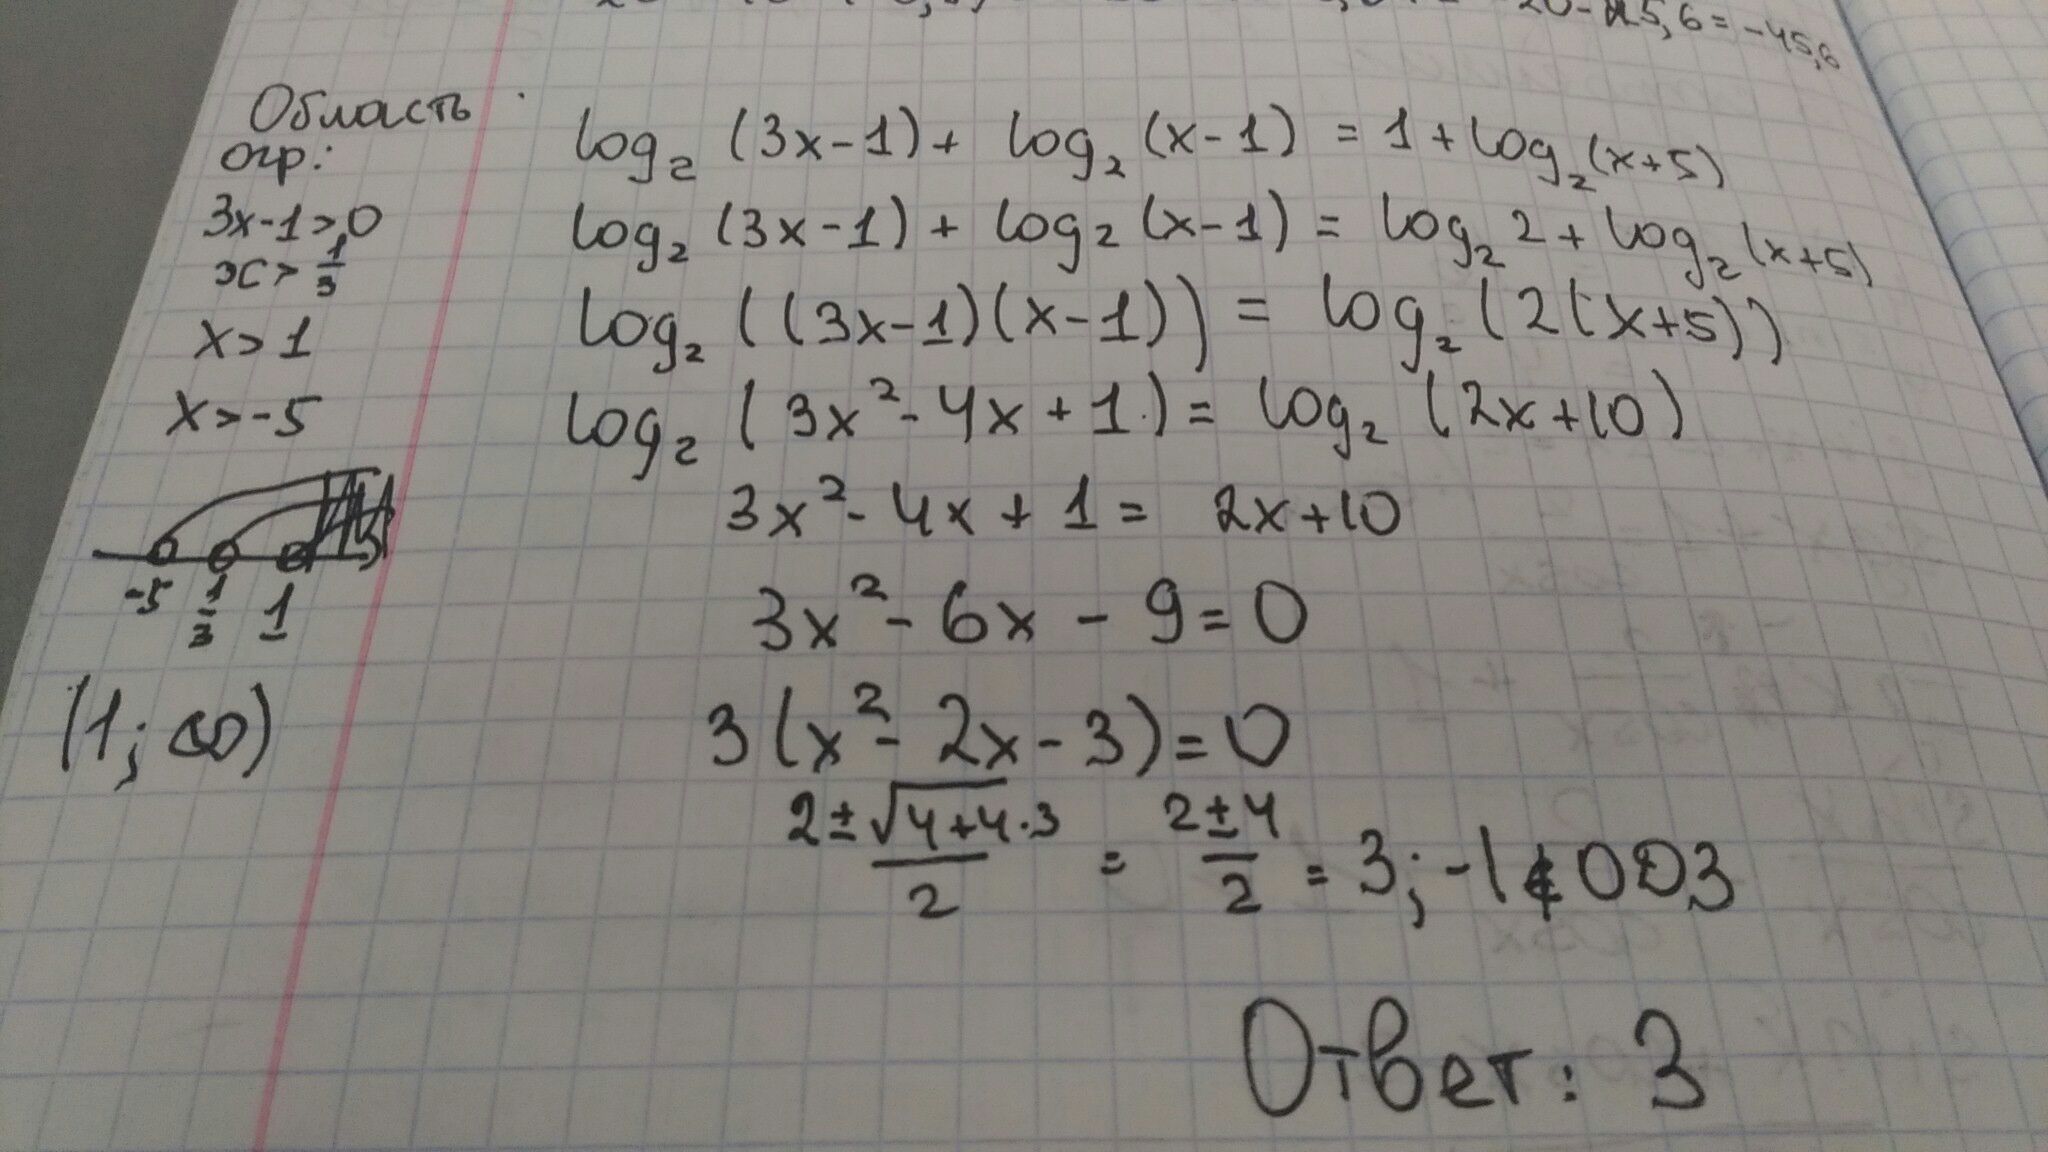 20-25,6=-45,6
Область
огр:
3x-1>0
x>1/3
x>1
x>-5
-5 1/3 1
(1;∞)
log₂(3x-1)+log₂(x-1)=1+log₂(x+5)
log₂(3x-1)+log₂(x-1)=log₂2+log₂(x+5)
log₂((3x-1)(x-1))=log₂(2(x+5))
log₂(3x²-4x+1)=log₂(2x+10)
3x²-4x+1=2x+10
3x²-6x-9=0
3(x²-2x-3)=0
(2±√(4+4·3))/2=(2±4)/2=3;-1∉ОДЗ
Ответ: 3